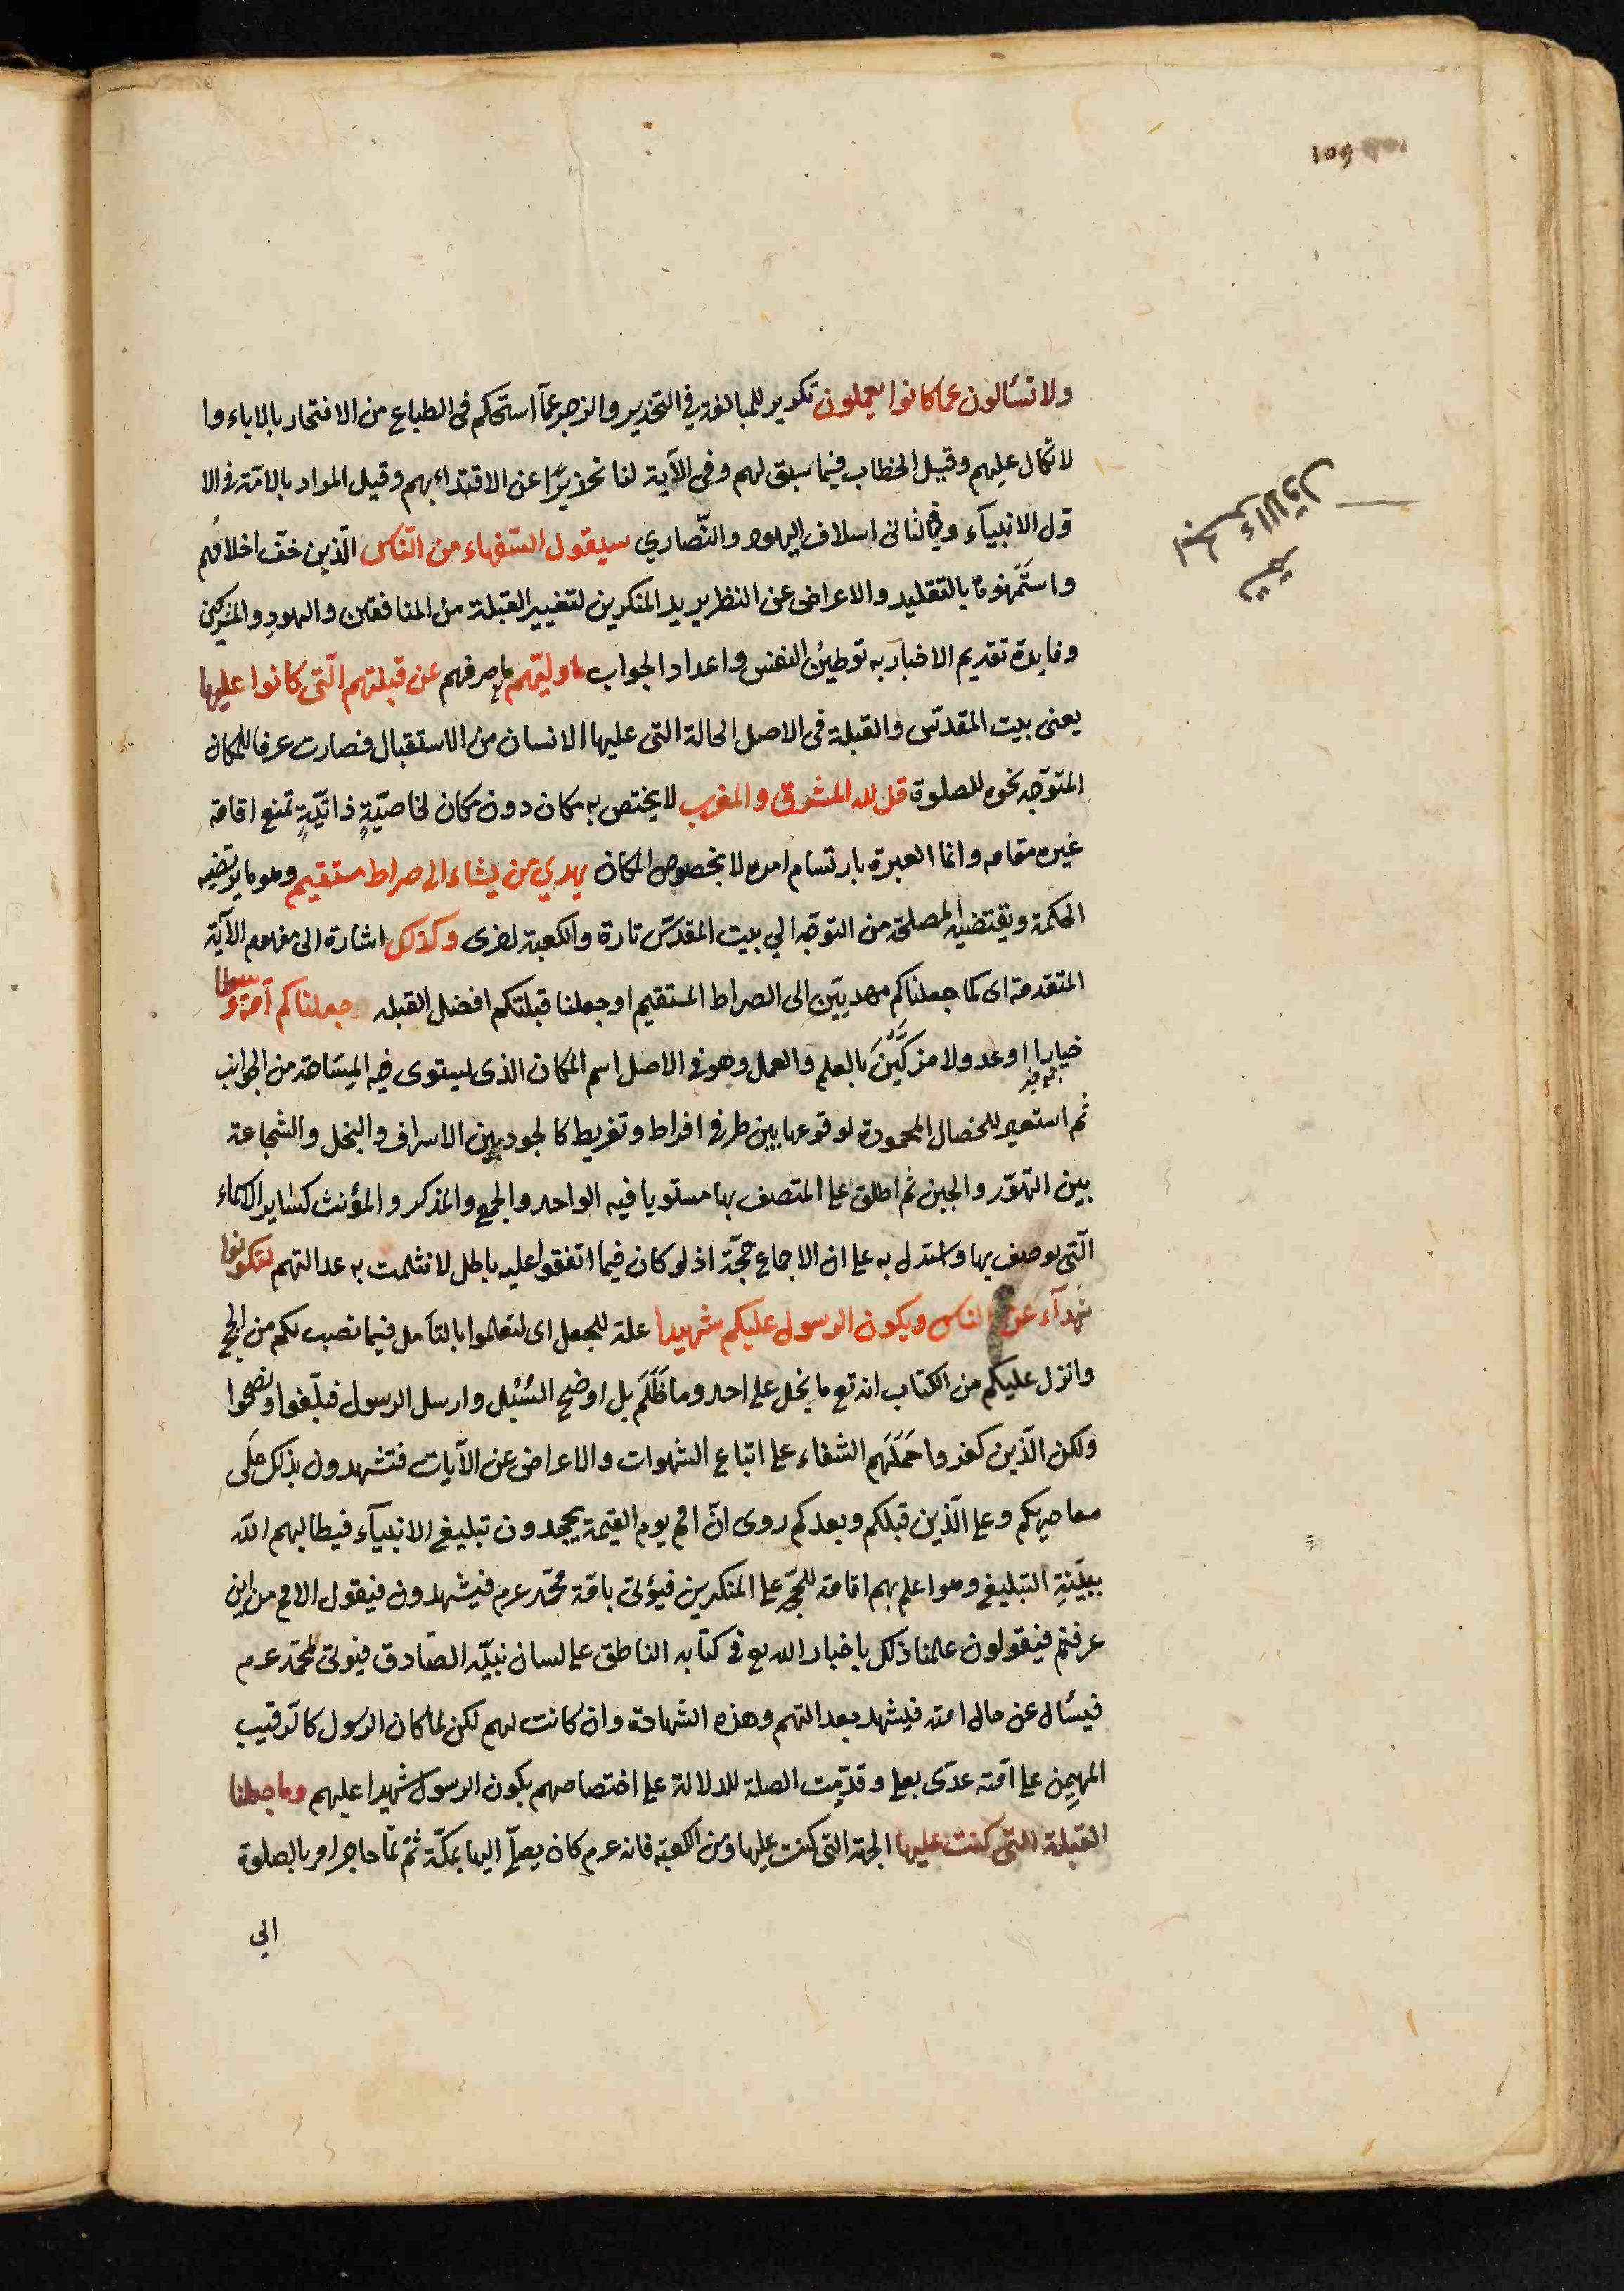 109
الجزء الاول
تمة
ولا تسألون عما كانوا يعملون تكرير للمبالغة في التحذير والزجر عمّا استحكم فى الطباع من الافتخار بالاباء وا
لاتكال عليهم وقيل الخطاب فيما سبق لهم وفى الآية لنا تحذيرًا عن الاقتداء بهم وقيل المراد بالامّة فى الا
ول الانبيآء وفي الثانى اسلاف اليهود والنّصاري سيقول السّفهاء من النّاس الّذين خفّ احلامُهم
واستَمْهَنوها بالتقليد والاعراض عن النظر يريد المنكرين لتغيير القبلة من المنافقين واليهودِ والمشركين
وفايدة تقديم الاخبار به توطينُ النفس واعداد الجواب ما وليّهم ما صرفهم عن قبلتهم الّتى كانوا عليها
يعنى بيت المقدّس والقبلة فى الاصل الحالة التى عليها الانسان من الاستقبال فصارت عرفا للمكان
المتوّجه نحوه للصلوة قل لله المشرق والمغرب لا يختص به مكان دون مكان لخاصيّةٍ ذاتيّةٍ تمنع اقامة
غيره مقامه وانما العبرة بارتسام امره لا بخصوص المكان يهدي من يشاء الى صراط مستقيم وهو ما يرتضيه
الحكمة ويقتضيه المصلحة من التوجّه الي بيت المقدّس تارة والكعبة اخرى وكذلك اشارة الى مفهوم الآية
المتقدمة اى كما جعلناكم مهديّين الى الصراط المستقيم او جعلنا قبلتكم افضل القبله جعلناكم امّة وسطا
خيارا او عدولا مزكَّيْنَ بالعلم والعمل وهو فى الاصل اسم المكان الذى ليستوى فيه المِسَاحة من الجوانب
ثم استعير للخصال المحمودة لوقوعها بين طرفى افراط وتفريط كالجود بين الاسراف والبخل والشجاعة
بين التهوّر والجبن ثم اطلق على المتصف بها مستويا فيه الواحد والجمع والمذكر والمؤنث كساير الاسماء
الّتى يوصف بها واستدل به على ان الاجماع حجّة اذ لو كان فيما اتفقوا عليه باطل لانثلمت به عدالتهم لتكونوا
شهدآء عن الناس ويكون الرسول عليكم شهيدا علة للجعل اى لتعلموا بالتأمل فيما نصب لكم من الحجج
وانزل عليكم من الكتاب انه تع ما بخل على احد وما ظَلَمَ بل اوضح السُبُل وارسل الرسول فبلّغوا ونصحوا
ولكن الّذين كفروا حَمَلَهم الشقاء على اتباع الشهوات والاعراض عن الآيات فتشهدون بذلك عَلَى
معاصريكم وعلى الّذين قبلكم وبعدكم روى انّ الامم يوم القيمة يجحدون تبليغ الانبيآء فيطالبهم اللّه
ببيّنةِ التبليغ وهو اعلم بهم اقامة للحجّة على المنكرين فيؤتى بامّة محمّد عرم فيشهدون فيقول الامم من اين
عرفتم فيقولون علمنا ذلك باخبار الله تع فى كتابه الناطق على لسان نبيّه الصّادق فيوتى لمحمّد عرم
فيسأل عن حال امته فيشهد بعدالتهم وهذه الشهادة وان كانت لهم لكن لما كان الرسول كالّرقيب
المهيمِن على امّته عدّى بعلى وقدّمت الصلة للدلالة على اختصاصهم بكون الرسول شهيدا عليهم وما جعلنا
القبلة التّى كنت عليها الجهة التى كنت عليها ومن الكعبة فانه عرم كان يصلّى اليها بمكّة ثمّ لمّا هاجر امر بالصلوة
الي